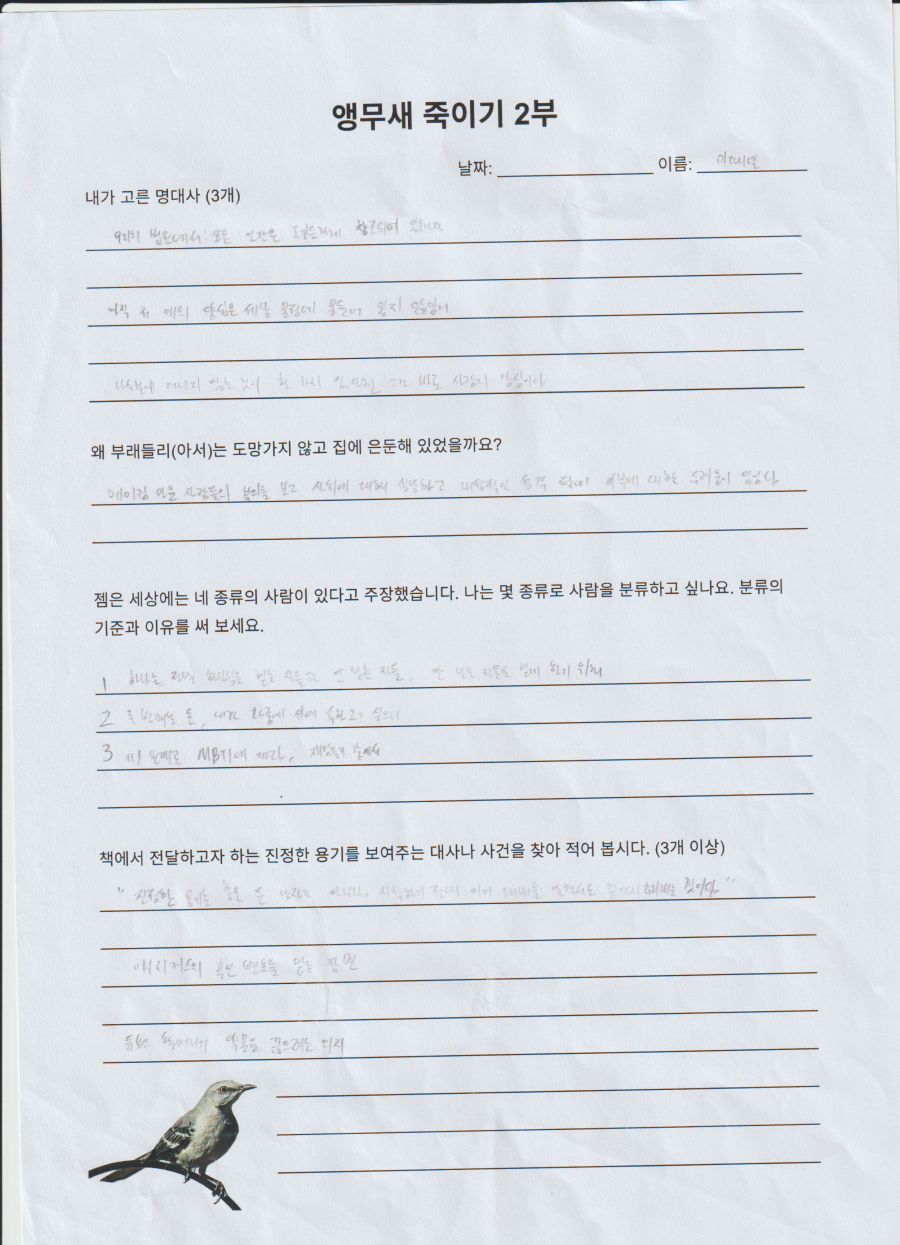 앵무새 죽이기 2부
날짜: 이름:
내가 고른 명대사 (3개)
우리의 법원에서는 모든 인간은 평등하게 창조되어 있습니다
아직 저 애의 양심은 세상 물정에 물들어 있지 않았어
다수결에 따르지 않는 것이 한 가지 있다면 그건 바로 사람의 양심이다
왜 부래들리(아서)는 도망가지 않고 집에 은둔해 있었을까요?
메이콤 마을 사람들의 보고 사회에 대해 실망하고 내성적인 성격 탓에 외부에 대한 두려움이 있었다
젬은 세상에는 네 종류의 사람이 있다고 주장했습니다. 나는 몇 종류로 사람을 분류하고 싶나요. 분류의
기준과 이유를 써 보세요.
1 하나는 믿는 자들과 안 믿는 자들, 안 믿는 자들을 하기 위해
2 두 번째는 돈, 내가 싶으니
3 세 번째로 MBTI에 따라, 재밌을거 같아서
책에서 전달하고자 하는 진정한 용기를 보여주는 대사나 사건을 찾아 적어 봅시다. (3개 이상)
"진정한 용기는 총을 든 아니라, 시작하기 전에 이미 패배를 끝까지 해내는 것이다."
애티커스의 흑인 변호를 맡는 장면
듀보스 할머니의 약물을 끊으려는 의지